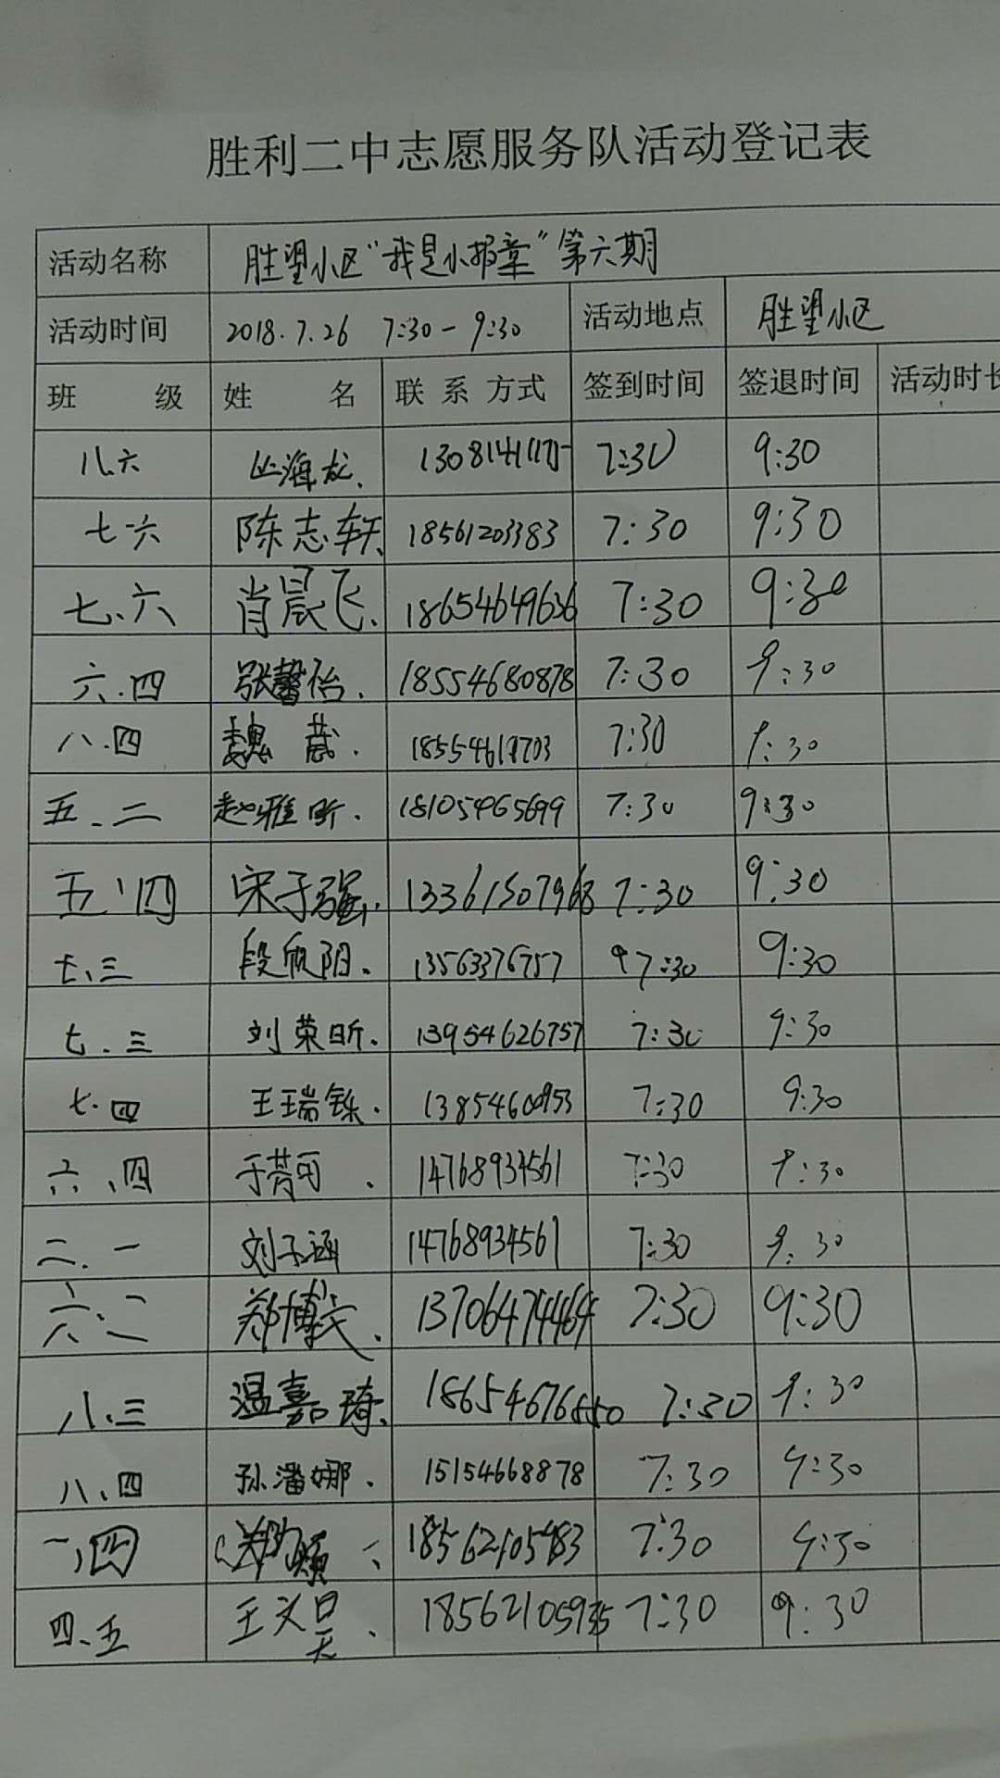 胜利二中志愿服务队活动登记表
活动名称 胜望小区“我是小报童”第六期
活动时间 2018.7.26 7:30-9:30 活动地点 胜望小区
班级 姓名 联系方式 签到时间 签退时间 活动时长
八.六 海龙. 7:30 9:30
七.六 陈志轩 18561203383 7:30 9:30
七.六 肖晨飞. 18654649636 7:30 9:30
六.四 张馨怡. 18554680878 7:30 9:30
八.四 魏 7:30 9:30
五.二 赵雅昕. 18105465699 7:30 9:30
五.四 宋子强. 13361507968 7:30 9:30
七.三 段欣阳. 13563376757 7:30 9:30
七.三 刘荣昕. 13954626757 7:30 9:30
七.四 王瑞铄. 13854600953 7:30 9:30
六.四 于芮可. 14768934561 7:30 9:30
二.一 刘子涵 14768934561 7:30 9:30
六.二 郑博文. 13706474464 7:30 9:30
八.三 温嘉琦. 7:30 9:30
八.四 孙潘娜. 15154668878 7:30 9:30
一.四 18562105483 7:30 9:30
四.五 王义昊. 18562105935 7:30 9:30